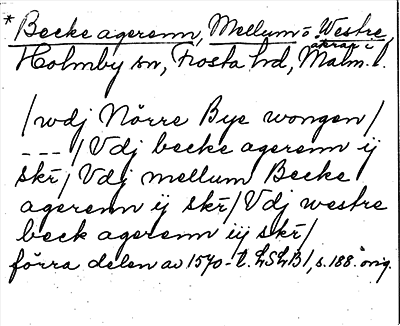 * Becke agerenn, Mellum- o Westre,
åkrar i
Holmby sn, Frosta hd, Malm. l.
/wdj Nörre Bye wongen/
---/Vdj becke agerenn ij
skr/ Vdj mellum Becke
agerenn ij skr/ Vdj westre
beck agerenn iij skr/
förra delen av 1570-t. LSLB1, s. 188. orig.